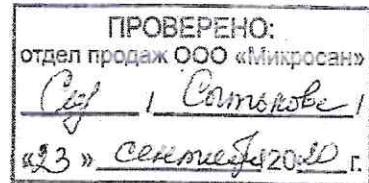 ПРОВЕРЕНО:
отдел продаж ООО «Микросан»
/ /
«23» сентября 2020 г.